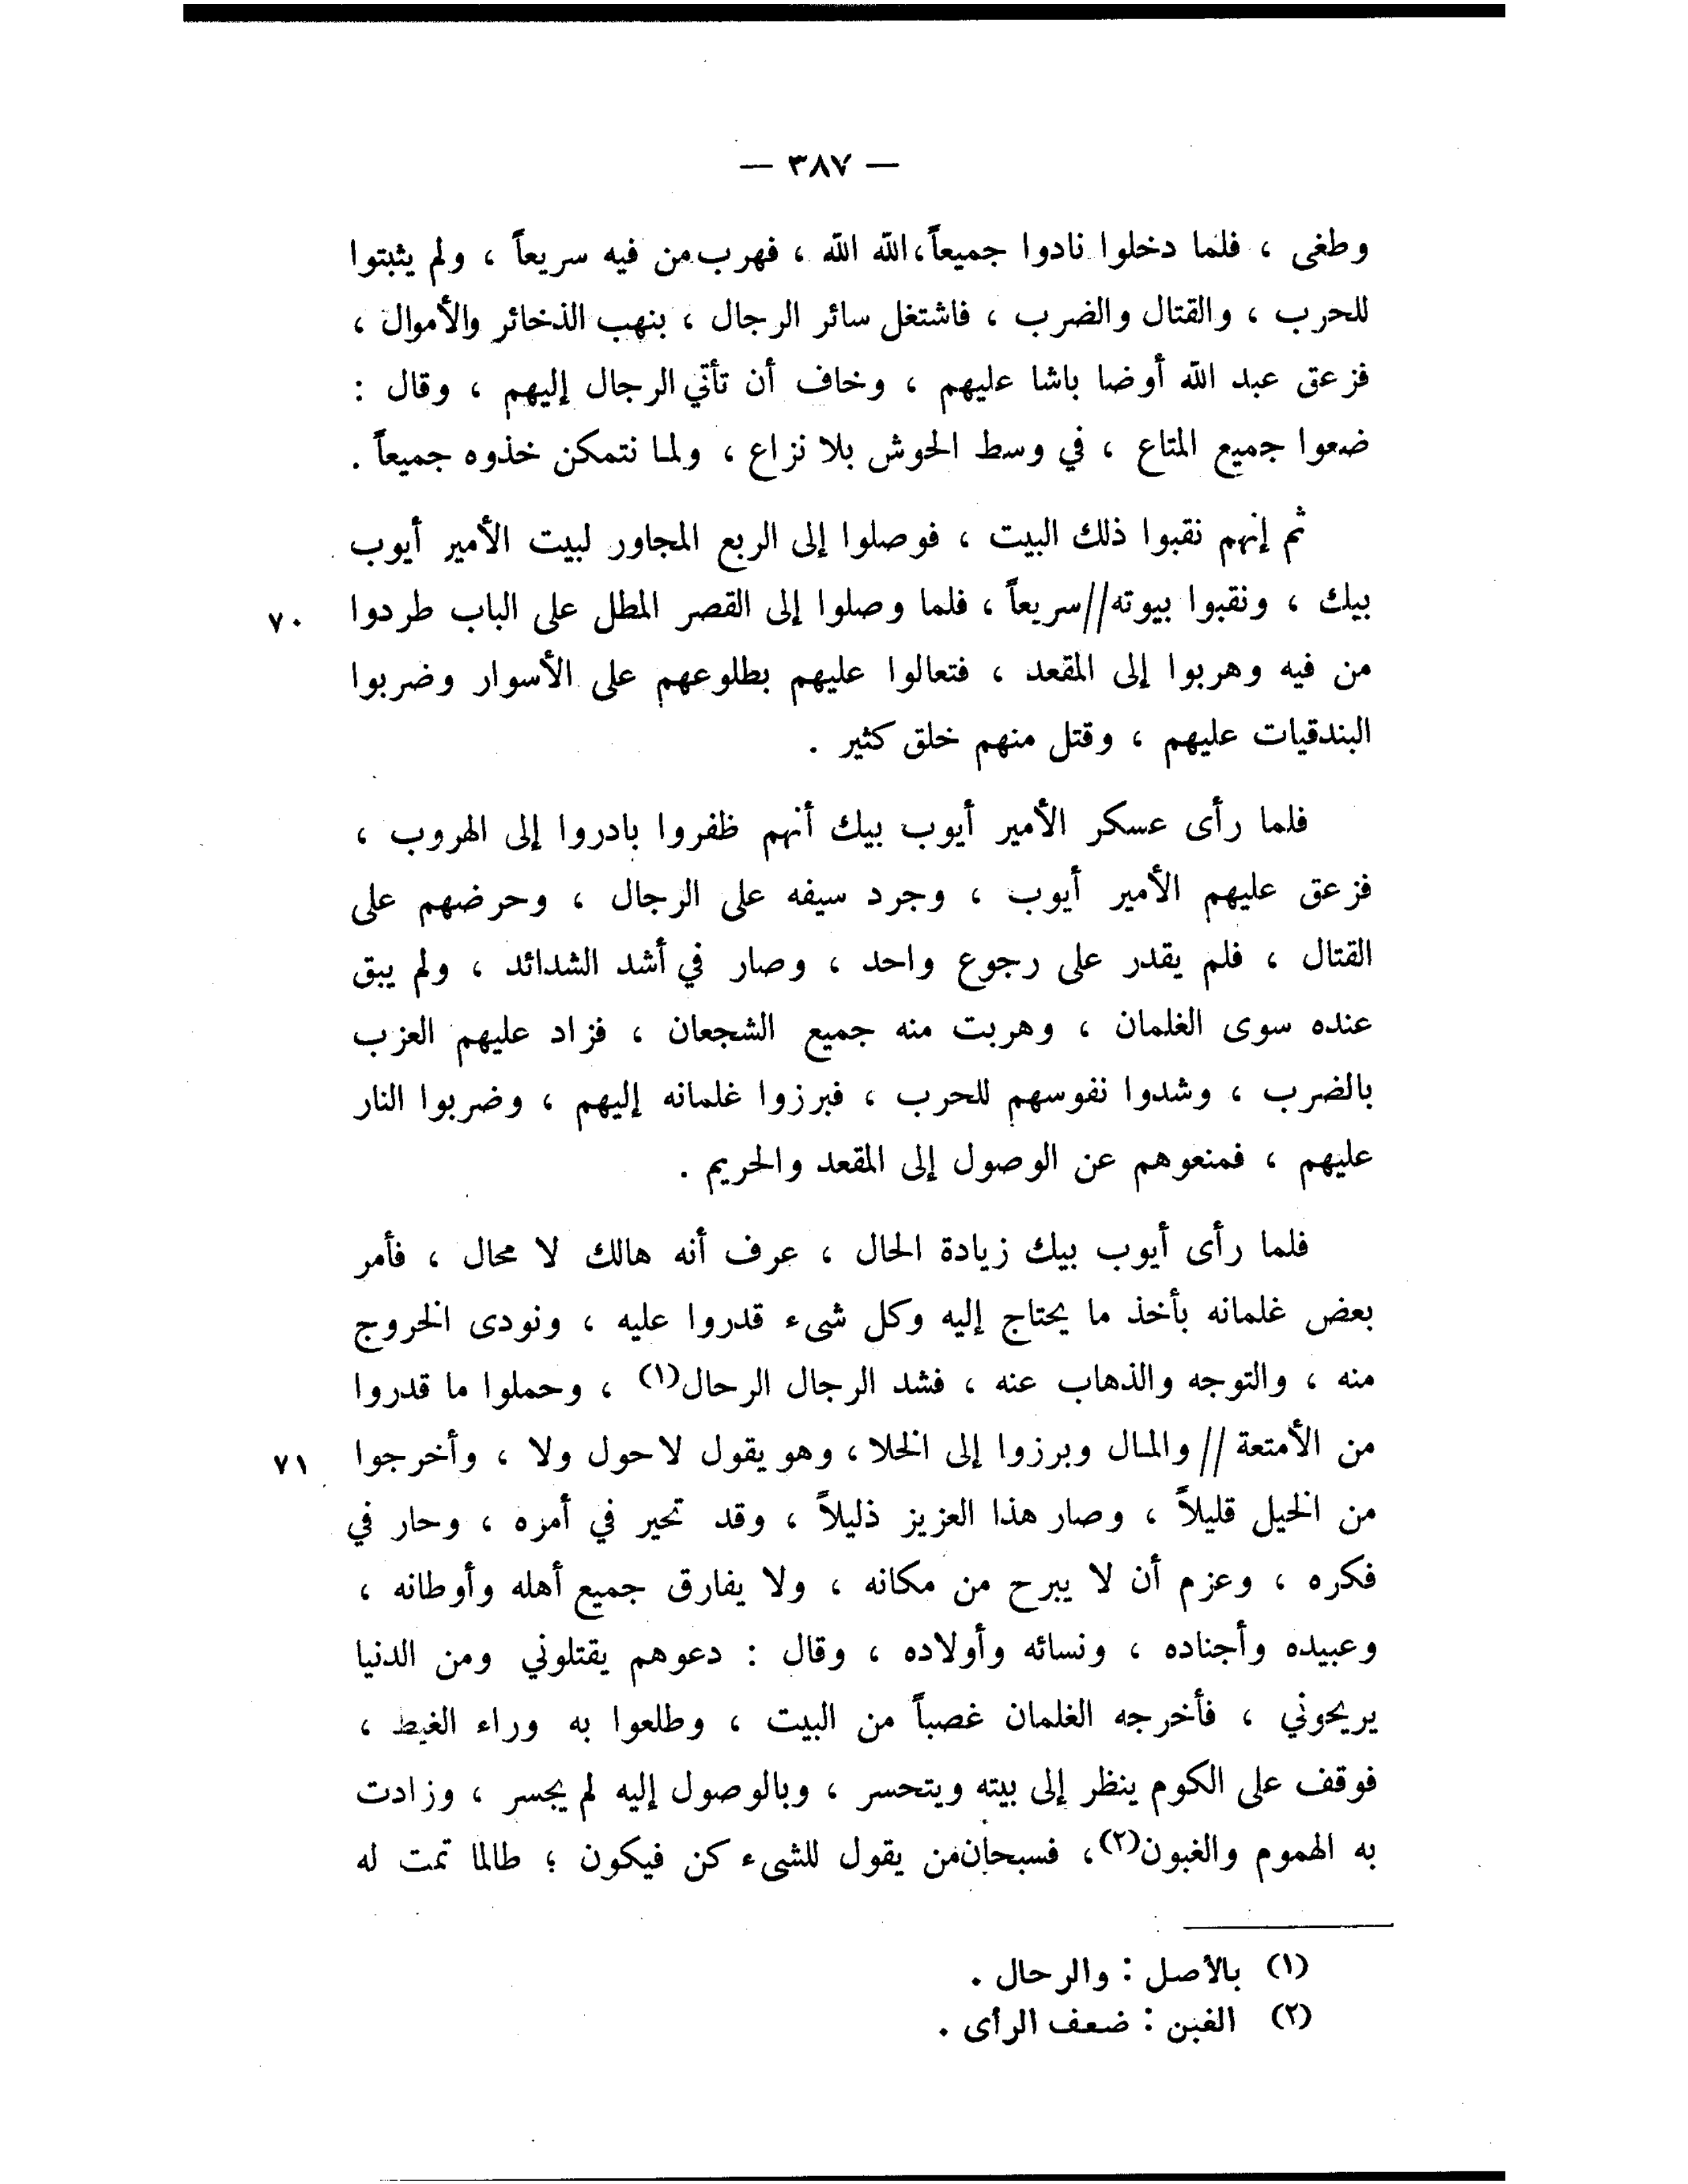 — ٣٨٧ —
وطغى ، فلما دخلوا نادوا جميعاً ، الله الله ، فهرب من فيه سريعاً ، ولم يثبتوا
للحرب ، والقتال والضرب ، فاشتغل سائر الرجال ، بنهب الذخائر والأموال ،
فزعق عبد الله أوضا باشا عليهم ، وخاف أن تأتي الرجال إليهم ، وقال :
ضعوا جميع المتاع ، في وسط الحوش بلا نزاع ، ولما نتمكن خذوه جميعاً .
ثم إنهم نقبوا ذلك البيت ، فوصلوا إلى الربع المجاور لبيت الأمير أيوب
بيك ، ونقبوا بيوته // سريعاً ، فلما وصلوا إلى القصر المطل على الباب طردوا ٧٠
من فيه وهربوا إلى المقعد ، فتعالوا عليهم بطلوعهم على الأسوار وضربوا
البندقيات عليهم ، وقتل منهم خلق كثير .
فلما رأى عسكر الأمير أيوب بيك أنهم ظفروا بادروا إلى الهروب ،
فزعق عليهم الأمير أيوب ، وجرد سيفه على الرجال ، وحرضهم على
القتال ، فلم يقدر على رجوع واحد ، وصار في أشد الشدائد ، ولم يبق
عنده سوى الغلمان ، وهربت منه جميع الشجعان ، فزاد عليهم العزب
بالضرب ، وشدوا نفوسهم للحرب ، فبرزوا غلمانه إليهم ، وضربوا النار
عليهم ، فمنعوهم عن الوصول إلى المقعد والحريم .
فلما رأى أيوب بيك زيادة الحال ، عرف أنه هالك لا محال ، فأمر
بعض غلمانه بأخذ ما يحتاج إليه وكل شىء قدروا عليه ، ونودى الخروج
منه ، والتوجه والذهاب عنه ، فشد الرجال الرحال(١) ، وحملوا ما قدروا
من الأمتعة // والمال وبرزوا إلى الخلا ، وهو يقول لا حول ولا ، وأخرجوا ٧١
من الخيل قليلاً ، وصار هذا العزيز ذليلاً ، وقد تحير في أمره ، وحار في
فكره ، وعزم أن لا يبرح من مكانه ، ولا يفارق جميع أهله وأوطانه ،
وعبيده وأجناده ، ونسائه وأولاده ، وقال : دعوهم يقتلوني ومن الدنيا
يريحوني ، فأخرجه الغلمان غصباً من البيت ، وطلعوا به وراء الغيط ،
فوقف على الكوم ينظر إلى بيته ويتحسر ، وبالوصول إليه لم يجسر ، وزادت
به الهموم والغبون(٢) ، فسبحان من يقول للشىء كن فيكون ؛ طالما تمت له
(١) بالأصل : والرحال .
(٢) الغبن : ضعف الرأى .